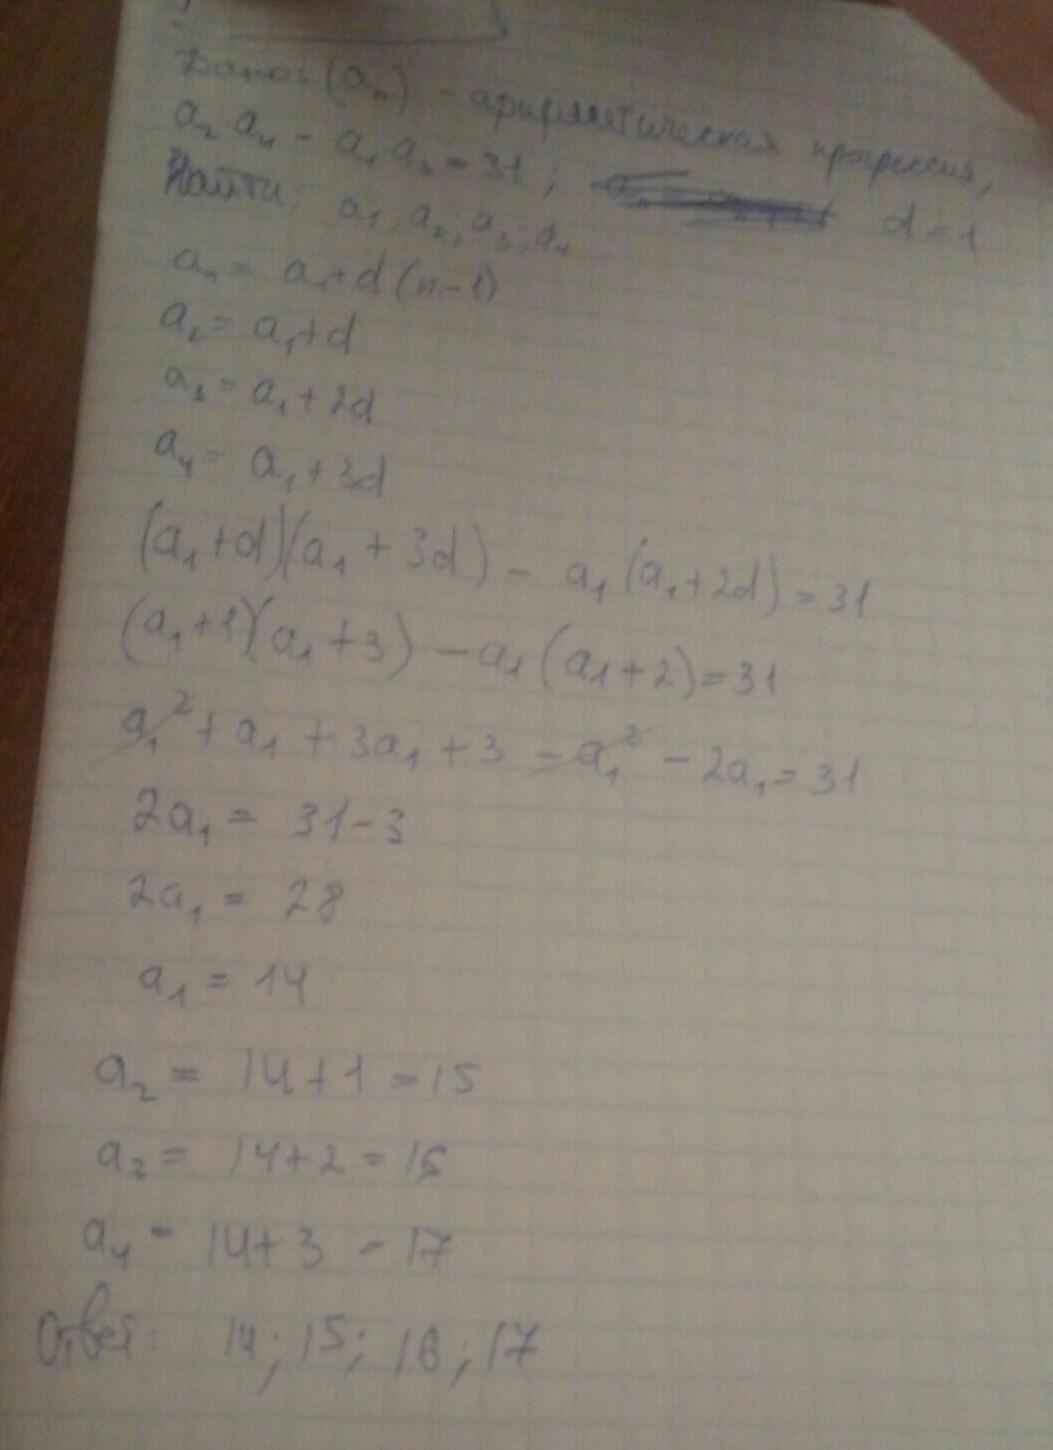 Дано: (aₙ) - арифметическая прогрессия,
a₂ a₄ - a₁ a₃ = 31; d = 1
Найти: a₁, a₂, a₃, a₄
aₙ = a₁+d(n-1)
a₂ = a₁+d
a₃ = a₁+2d
a₄ = a₁+3d
(a₁+d)(a₁+3d) - a₁(a₁+2d) = 31
(a₁+1)(a₁+3) - a₁(a₁+2) = 31
a₁² + a₁ + 3a₁ + 3 - a₁² - 2a₁ = 31
2a₁ = 31-3
2a₁ = 28
a₁ = 14
a₂ = 14+1 = 15
a₃ = 14+2 = 16
a₄ = 14+3 = 17
Ответ: 14; 15; 16; 17